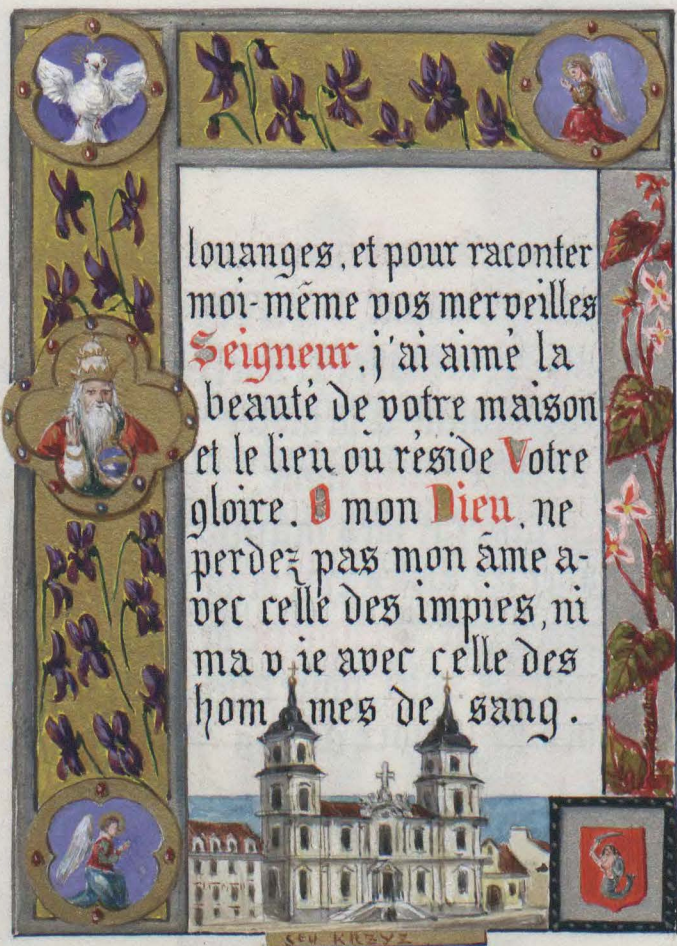 louanges, et pour raconter
moi-même vos merveilles
Seigneur, j'ai aimé la
beauté de votre maison
et le lieu où réside Votre
gloire. O mon Dieu, ne
perdez pas mon âme a-
vec celle des impies, ni
ma vie avec celle des
hommes de sang.
KRZYZ